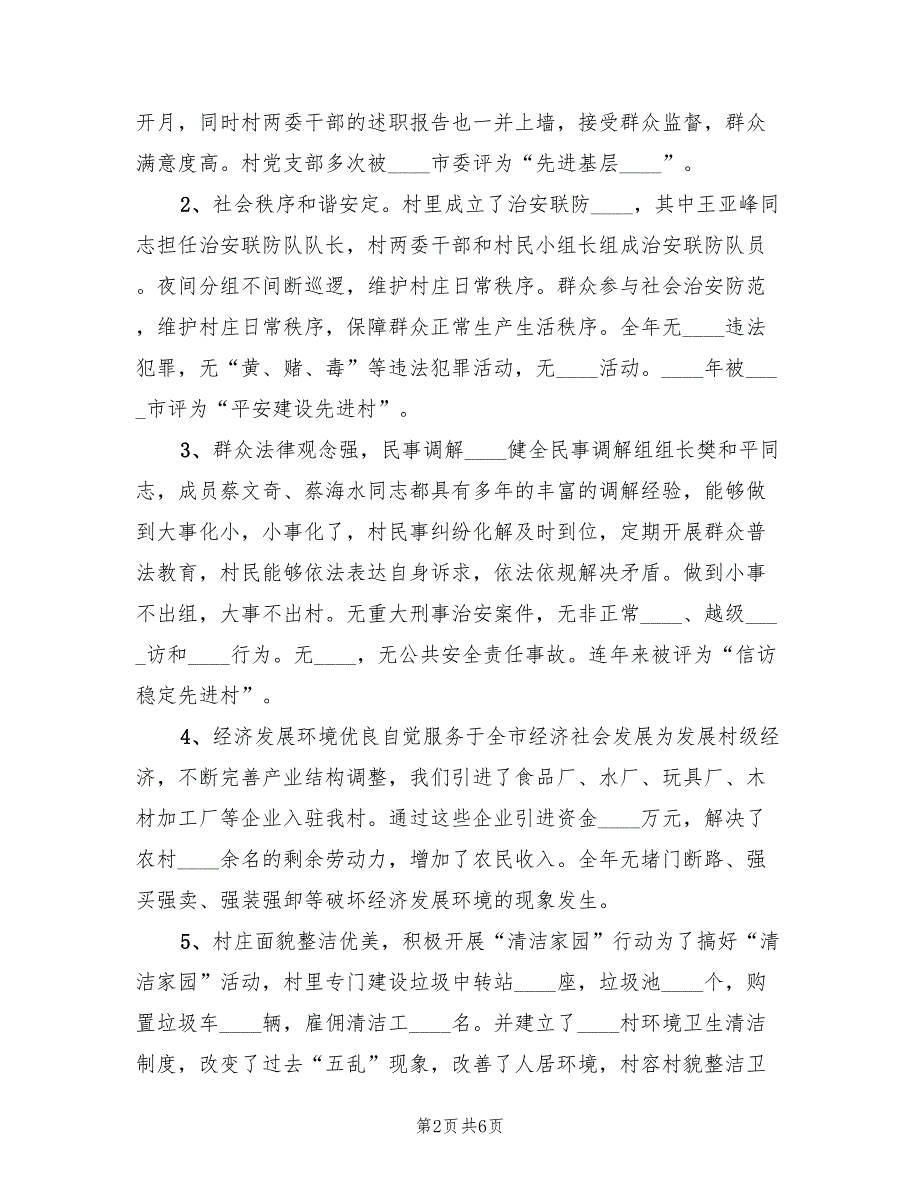 开月，同时村两委干部的述职报告也一并上墙，接受群众监督，群众
满意度高。村党支部多次被____市委评为“先进基层____”。
2、社会秩序和谐安定。村里成立了治安联防____，其中王亚峰同
志担任治安联防队队长，村两委干部和村民小组长组成治安联防队员
。夜间分组不间断巡逻，维护村庄日常秩序。群众参与社会治安防范
，维护村庄日常秩序，保障群众正常生产生活秩序。全年无____违法
犯罪，无“黄、赌、毒”等违法犯罪活动，无____活动。____年被___
_市评为“平安建设先进村”。
3、群众法律观念强，民事调解____健全民事调解组组长樊和平同
志，成员蔡文奇、蔡海水同志都具有多年的丰富的调解经验，能够做
到大事化小，小事化了，村民事纠纷化解及时到位，定期开展群众普
法教育，村民能够依法表达自身诉求，依法依规解决矛盾。做到小事
不出组，大事不出村。无重大刑事治安案件，无非正常____、越级___
_访和____行为。无____，无公共安全责任事故。连年来被评为“信访
稳定先进村”。
4、经济发展环境优良自觉服务于全市经济社会发展为发展村级经
济，不断完善产业结构调整，我们引进了食品厂、水厂、玩具厂、木
材加工厂等企业入驻我村。通过这些企业引进资金____万元，解决了
农村____余名的剩余劳动力，增加了农民收入。全年无堵门断路、强
买强卖、强装强卸等破坏经济发展环境的现象发生。
5、村庄面貌整洁优美，积极开展“清洁家园”行动为了搞好“清
洁家园”活动，村里专门建设垃圾中转站____座，垃圾池____个，购
置垃圾车____辆，雇佣清洁工____名。并建立了____村环境卫生清洁
制度，改变了过去“五乱”现象，改善了人居环境，村容村貌整洁卫
第2页 共6页